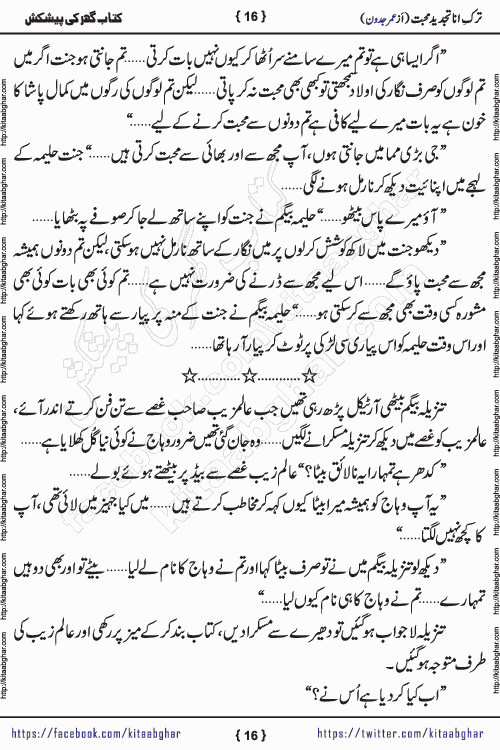 ترکِ انا تجدیدِ محبت (از عمر جدون) { 16 } کتاب گھر کی پیشکش
”اگر ایسا ہی ہے تو تم میرے سامنے سر اُٹھا کر کیوں نہیں بات کرتی......تم جانتی ہو جنت اگر میں
تم لوگوں کو صرف نگار کی اولاد سمجھتی تو کبھی بھی محبت نہ کر پاتی......لیکن تم لوگوں کی رگوں میں کمال پاشا کا
خون ہے یہ بات میرے لیے کافی ہے تم دونوں سے محبت کرنے کے لیے......“
”جی بڑی مما میں جانتی ہوں، آپ مجھ سے اور بھائی سے محبت کرتی ہیں......“ جنت حلیمہ کے
لہجے میں اپنائیت دیکھ کر نارمل ہونے لگی......
”آؤ میرے پاس بیٹھو......“ حلیمہ بیگم نے جنت کو اپنے ساتھ لے جا کر صوفے پہ بٹھایا......
”دیکھو جنت میں لاکھ کوشش کر لوں پر میں نگار کے ساتھ نارمل نہیں ہو سکتی، لیکن تم دونوں ہمیشہ
مجھ سے محبت پاؤ گے......اس لیے مجھ سے ڈرنے کی ضرورت نہیں ہے......تم کوئی بھی بات کوئی بھی
مشورہ کسی وقت بھی مجھ سے کر سکتی ہو......“ حلیمہ بیگم نے جنت کے منہ پر پیار سے ہاتھ رکھتے ہوئے کہا
اور اس وقت حلیمہ کو اس پیاری سی لڑکی پر ٹوٹ کر پیار آ رہا تھا......
☆............☆............☆
تنزیلہ بیگم بیٹھی آرٹیکل پڑھ رہی تھیں جب عالمزیب صاحب غصے سے تن فن کرتے اندر آئے،
عالمزیب کو غصے میں دیکھ کر تنزیلہ مسکرانے لگیں......وہ جان گئی تھیں ضرور وہاج نے کوئی نیا گل کھلایا ہے......
”کدھر ہے تمہارا یہ نالائق بیٹا؟“ عالم زیب غصے سے بیڈ پر بیٹھتے ہوئے بولے......
”یہ آپ وہاج کو ہمیشہ میرا بیٹا کیوں کہہ کر مخاطب کرتے ہیں......میں کیا جہیز میں لائی تھی، آپ
کا کچھ نہیں لگتا......“
”دیکھ لو تنزیلہ بیگم میں نے تو صرف بیٹا کہا اور تم نے وہاج کا نام لے لیا......بیٹے تو اور بھی دو ہیں
تمہارے......تم نے وہاج کا ہی نام کیوں لیا......“
تنزیلہ لاجواب ہو گئیں تو دھیرے سے مسکرا دیں، کتاب بند کر کے میز پر رکھی اور عالم زیب کی
طرف متوجہ ہو گئیں۔
”اب کیا کر دیا ہے اُس نے؟“
https://facebook.com/kitaabghar { 16 } https://twitter.com/kitaabghar
http://kitaabghar.com http://kitaabghar.com http://kitaabghar.com http://kitaabghar.com http://kitaabghar.com http://kitaabghar.com http://kitaabghar.com http://kitaabghar.com